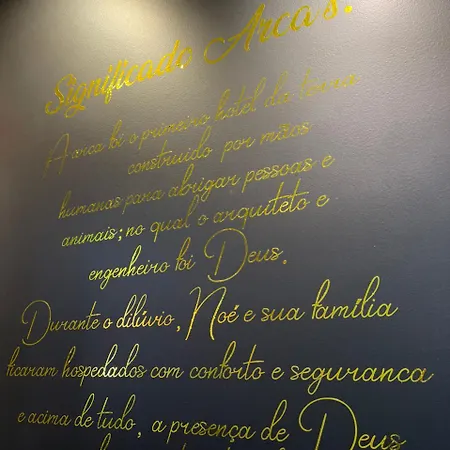 Significado Arca's:
A arca foi o primeiro hotel da terra
construido por mãos
humanas para abrigar pessoas e
animais; no qual o arquiteto e
engenheiro foi Deus.
Durante o dilúvio, Noé e sua família
ficaram hospedados com conforto e seguranca
e acima de tudo, a presença de Deus